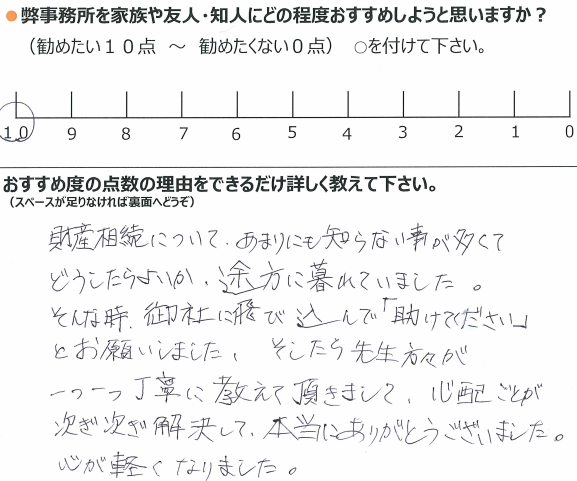 ●弊事務所を家族や友人・知人にどの程度おすすめしようと思いますか？
（勧めたい１０点　～　勧めたくない０点）　○を付けて下さい。
10 9 8 7 6 5 4 3 2 1 0
おすすめ度の点数の理由をできるだけ詳しく教えて下さい。
（スペースが足りなければ裏面へどうぞ）
財産相続について、あまりにも知らない事が多くて
どうしたらよいか、途方に暮れていました。
そんな時、御社に飛び込んで「助けてください」
とお願いしました、そしたら先生方々が
一つ一つ丁寧に教えて頂きまして、心配ごとが
次ぎ次ぎ解決して、本当にありがとうございました。
心が軽くなりました。